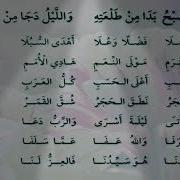 بَدَا مِنْ طَلْعَتِهِ وَاللَّيْلُ دَجَا مِنْ
فَضْلًا وَعُلَا أَهْدَى السُّبُلَا
مَوْلَى النِّعَمِ هَادِي الْأُمَمِ
أَعْلَى الْحَسَبِ كُلُّ الْعَرَبِ
نَطَقَ الْحَجَرُ شُقَّ الْقَمَرُ
لَيْلَةَ أَسْرَى وَالرَّبُّ دَعَا
وَاللهُ عَفَا عَمَّا سَلَفَا
هُوَ سَيِّدُنَا فَالْعِزُّ لَنَا